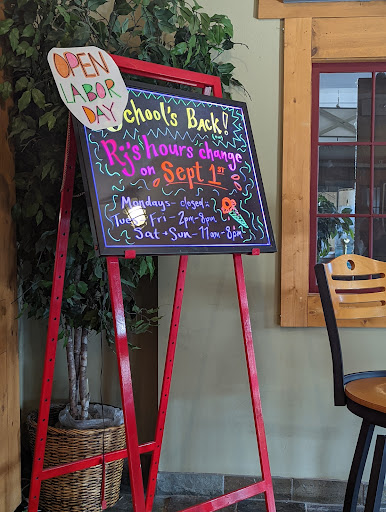 OPEN
LABOR
DAY
School's Back!
Rj's hours change
on Sept 1st
Mondays - closed
Tues - Fri - 2pm-8pm
Sat + Sun - 11am-8pm